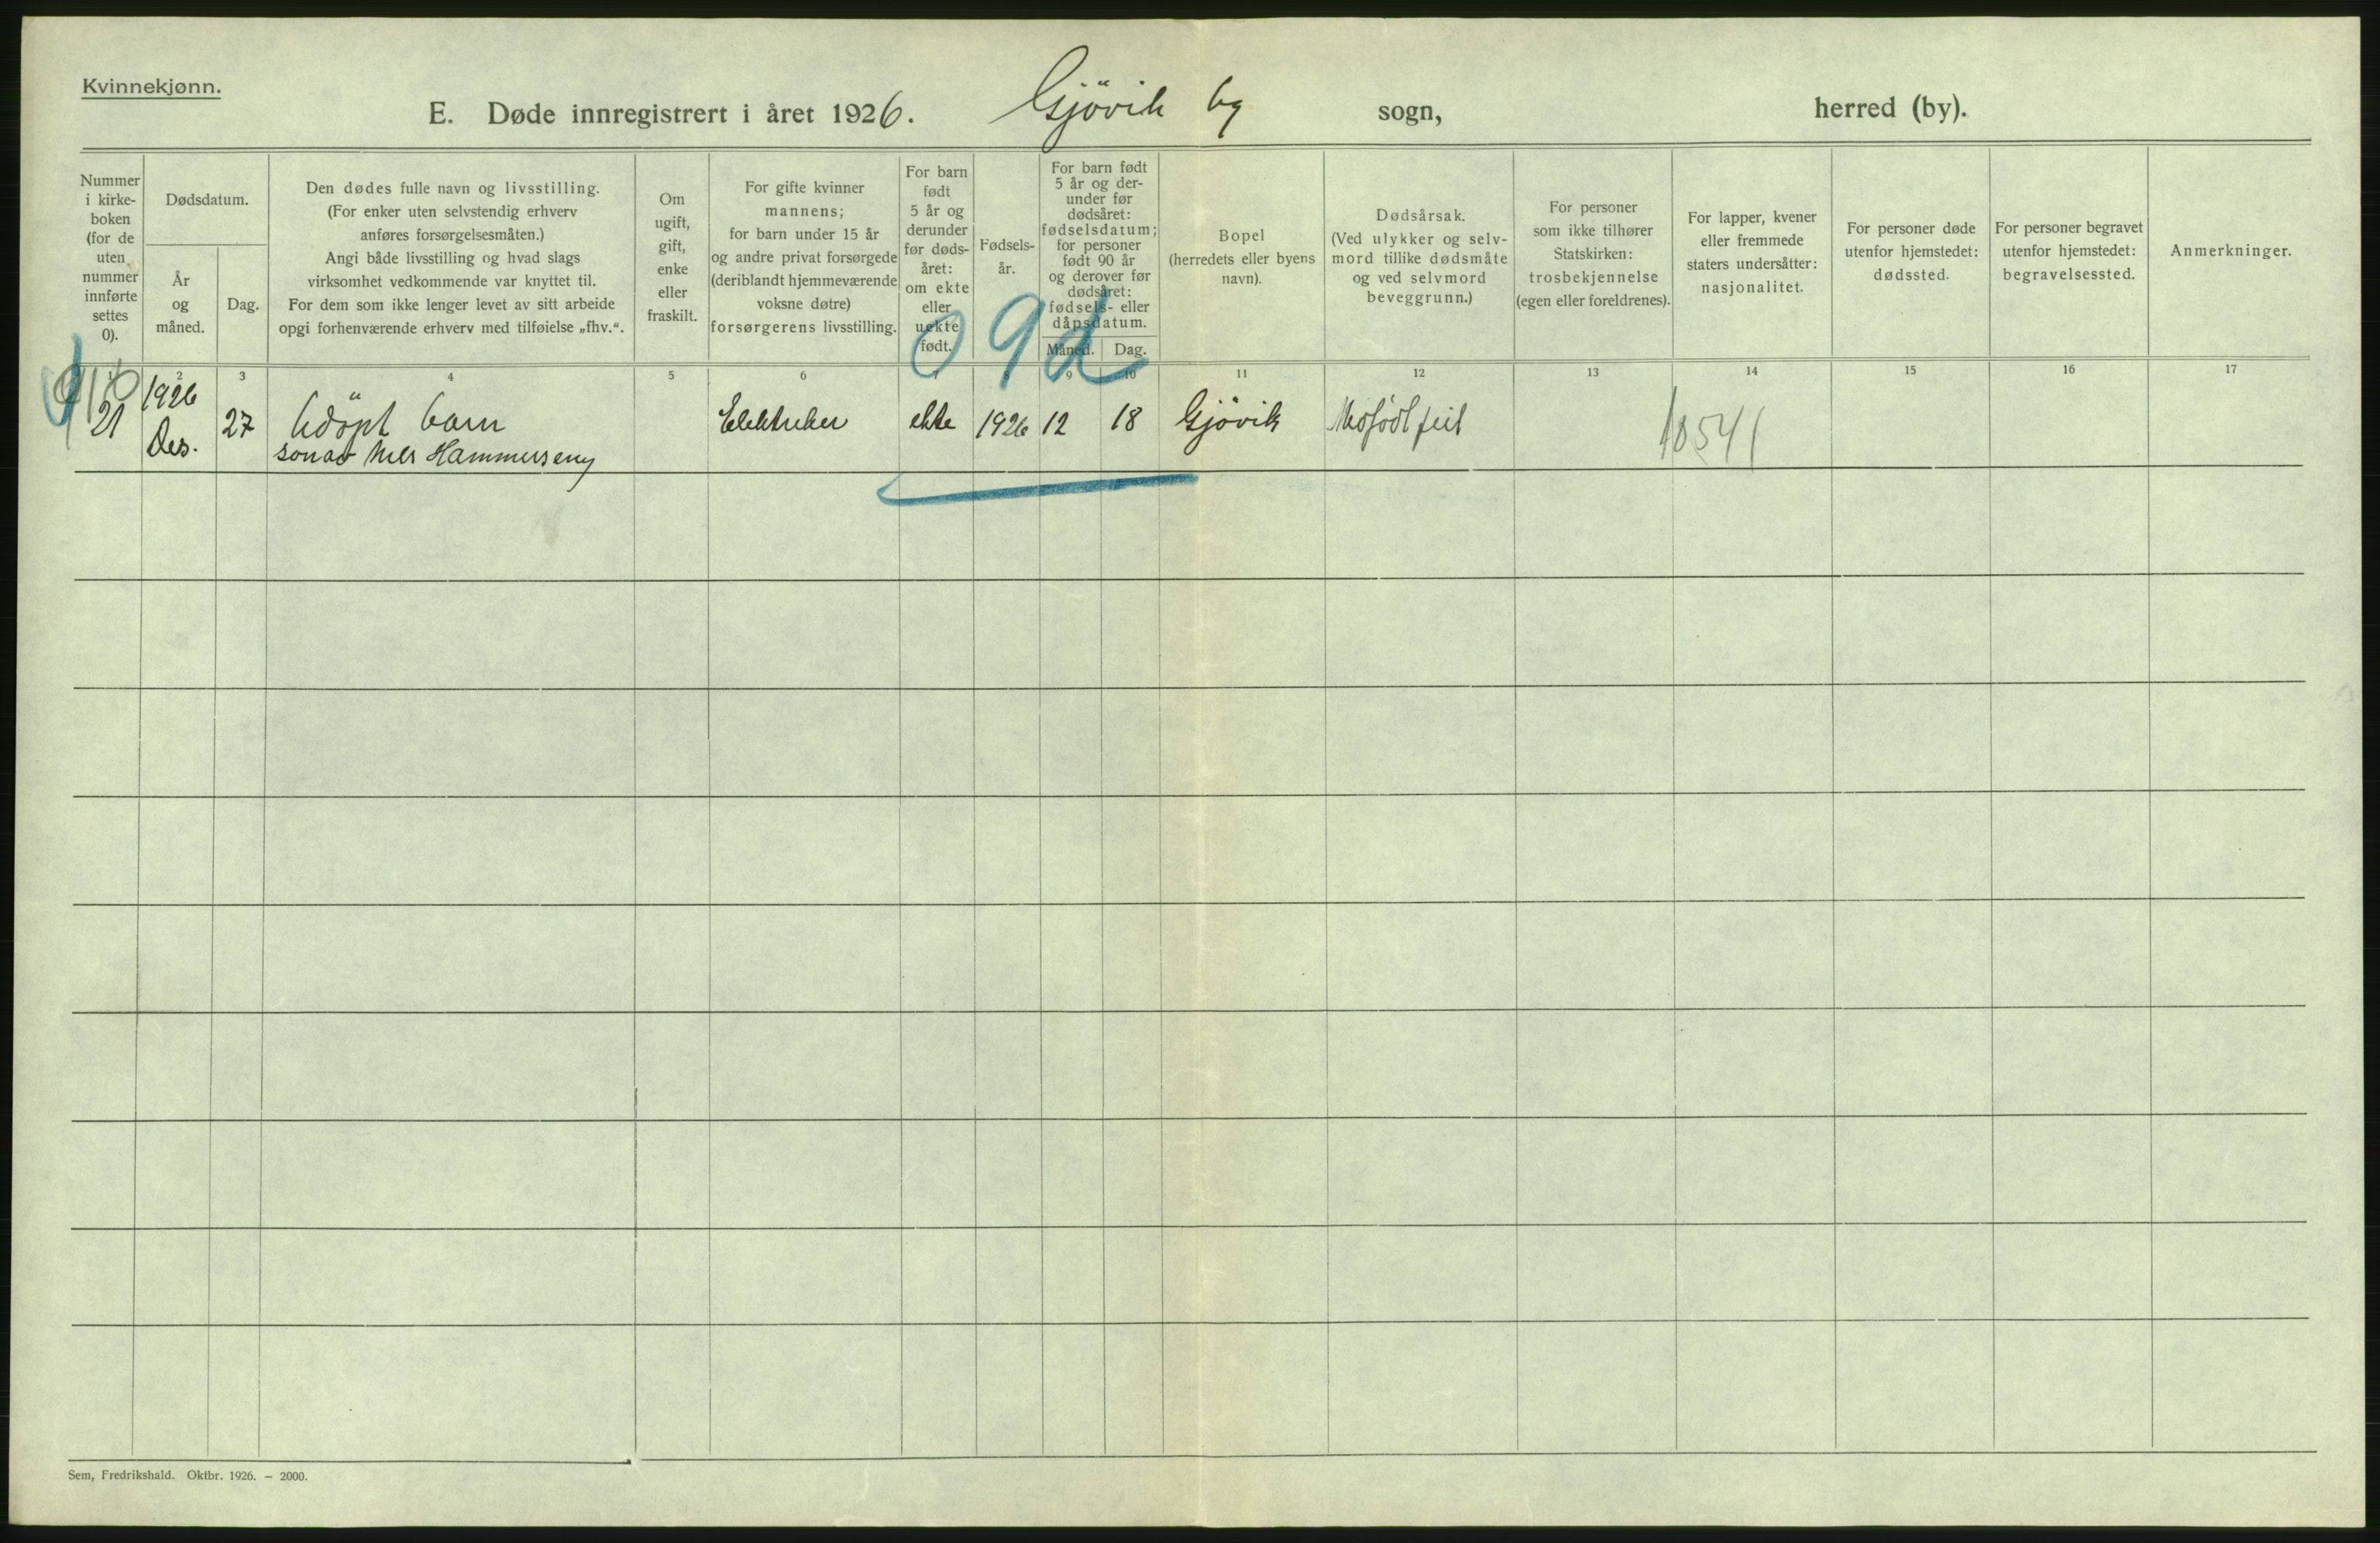 Kvinnekjønn.
E. Døde innregistrert i året 1926. Gjövik by sogn, herred (by).
Nummer
i kirke-
boken
(for de
uten
nummer
innførte
settes
0).
Dødsdatum.
År
og
måned.
Dag.
Den dødes fulle navn og livsstilling.
(For enker uten selvstendig erhverv
anføres forsørgelsesmåten.)
Angi både livsstilling og hvad slags
virksomhet vedkommende var knyttet til.
For dem som ikke lenger levet av sitt arbeide
opgi forhenværende erhverv med tilføielse „fhv.“.
Om
ugift,
gift,
enke
eller
fraskilt.
For gifte kvinner
mannens;
for barn under 15 år
og andre privat forsørgede
(deriblandt hjemmeværende
voksne døtre)
forsørgerens livsstilling.
For barn
født
5 år og
derunder
før døds-
året:
om ekte
eller
uekte
født.
Fødsels-
år.
For barn født
5 år og der-
under før
dødsåret:
fødselsdatum;
for personer
født 90 år
og derover før
dødsåret:
fødsels- eller
dåpsdatum.
Måned. Dag.
Bopel
(herredets eller byens
navn).
Dødsårsak.
(Ved ulykker og selv-
mord tillike dødsmåte
og ved selvmord
beveggrunn.)
For personer
som ikke tilhører
Statskirken:
trosbekjennelse
(egen eller foreldrenes).
For lapper, kvener
eller fremmede
staters undersåtter:
nasjonalitet.
For personer døde
utenfor hjemstedet:
dødssted.
For personer begravet
utenfor hjemstedet:
begravelsessted.
Anmerkninger.
0 9 d
1 2 3 4 5 6 7 8 9 10 11 12 13 14 15 16 17
1926
21 Des. 27 Udöpt barn Elektriker ekte 1926 12 18 Gjövik Medfödt feil 10541
son av Nils Hammerseng
Sem, Fredrikshald. Oktbr. 1926. — 2000.